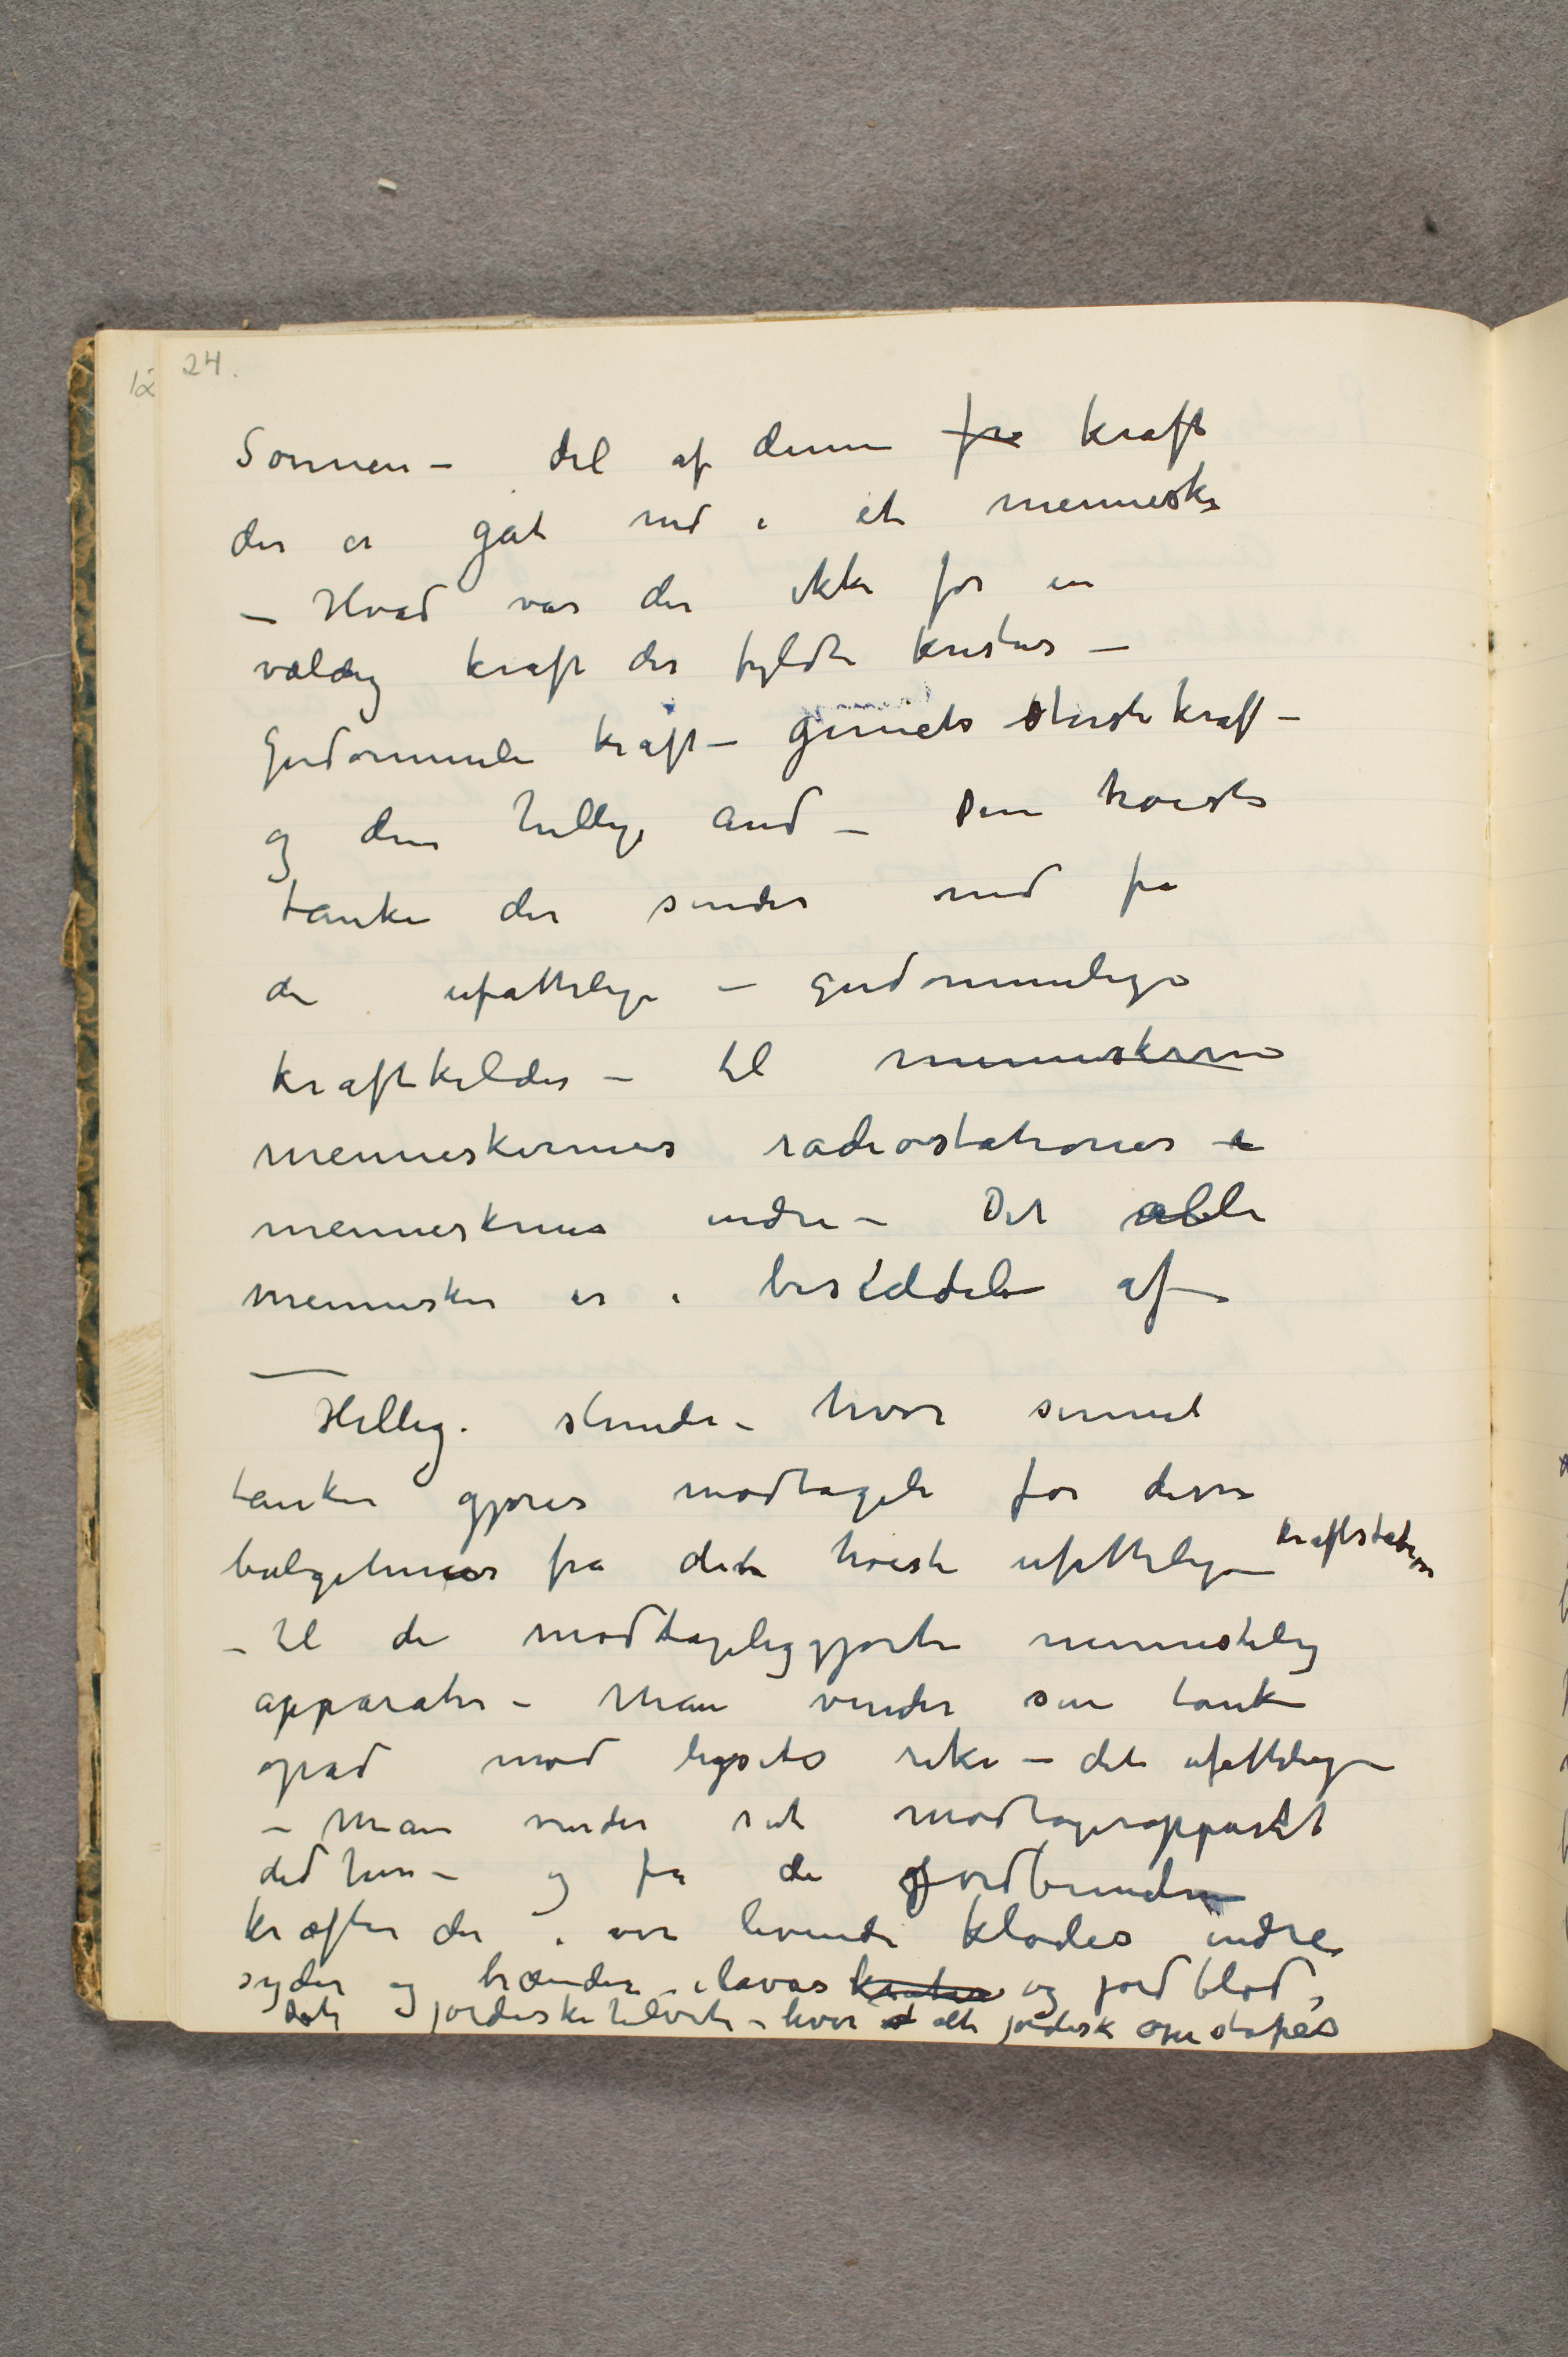 24.
Sønnen – del af denne fra kraft
der er gåt ned i et menneske
– Hvad var der ikke for en
vældig kraft der fyldte kristus –
Guddommele kraft – geniets største kraft –
og den hellige ånd – Den høieste
tanke der sendes ned fra
de ufattelige – guddommelige
kraftkilder – til menneskerne
menneskernes radiostationer i
menneskenes indre – Det alle
mennesker er i besiddelse af –
Hellig. stunder – hvor sinnet
tanken gjøres modtagele for disse
bølgelinier fra dette høieste ufattelige kraftstation
– til de modtageliggjorte menneskelig
apparater – Man vender sin tanke
opad mod lysets rike – det ufattelige
– Man vender sit modtagerapparat
did hen – og fra de jordbundne
kræfter der i vor levende klodes indre
syder og brænder i lavas krater og jordblod,
det jordiske helvete – hvor alt jordisk omstøpes